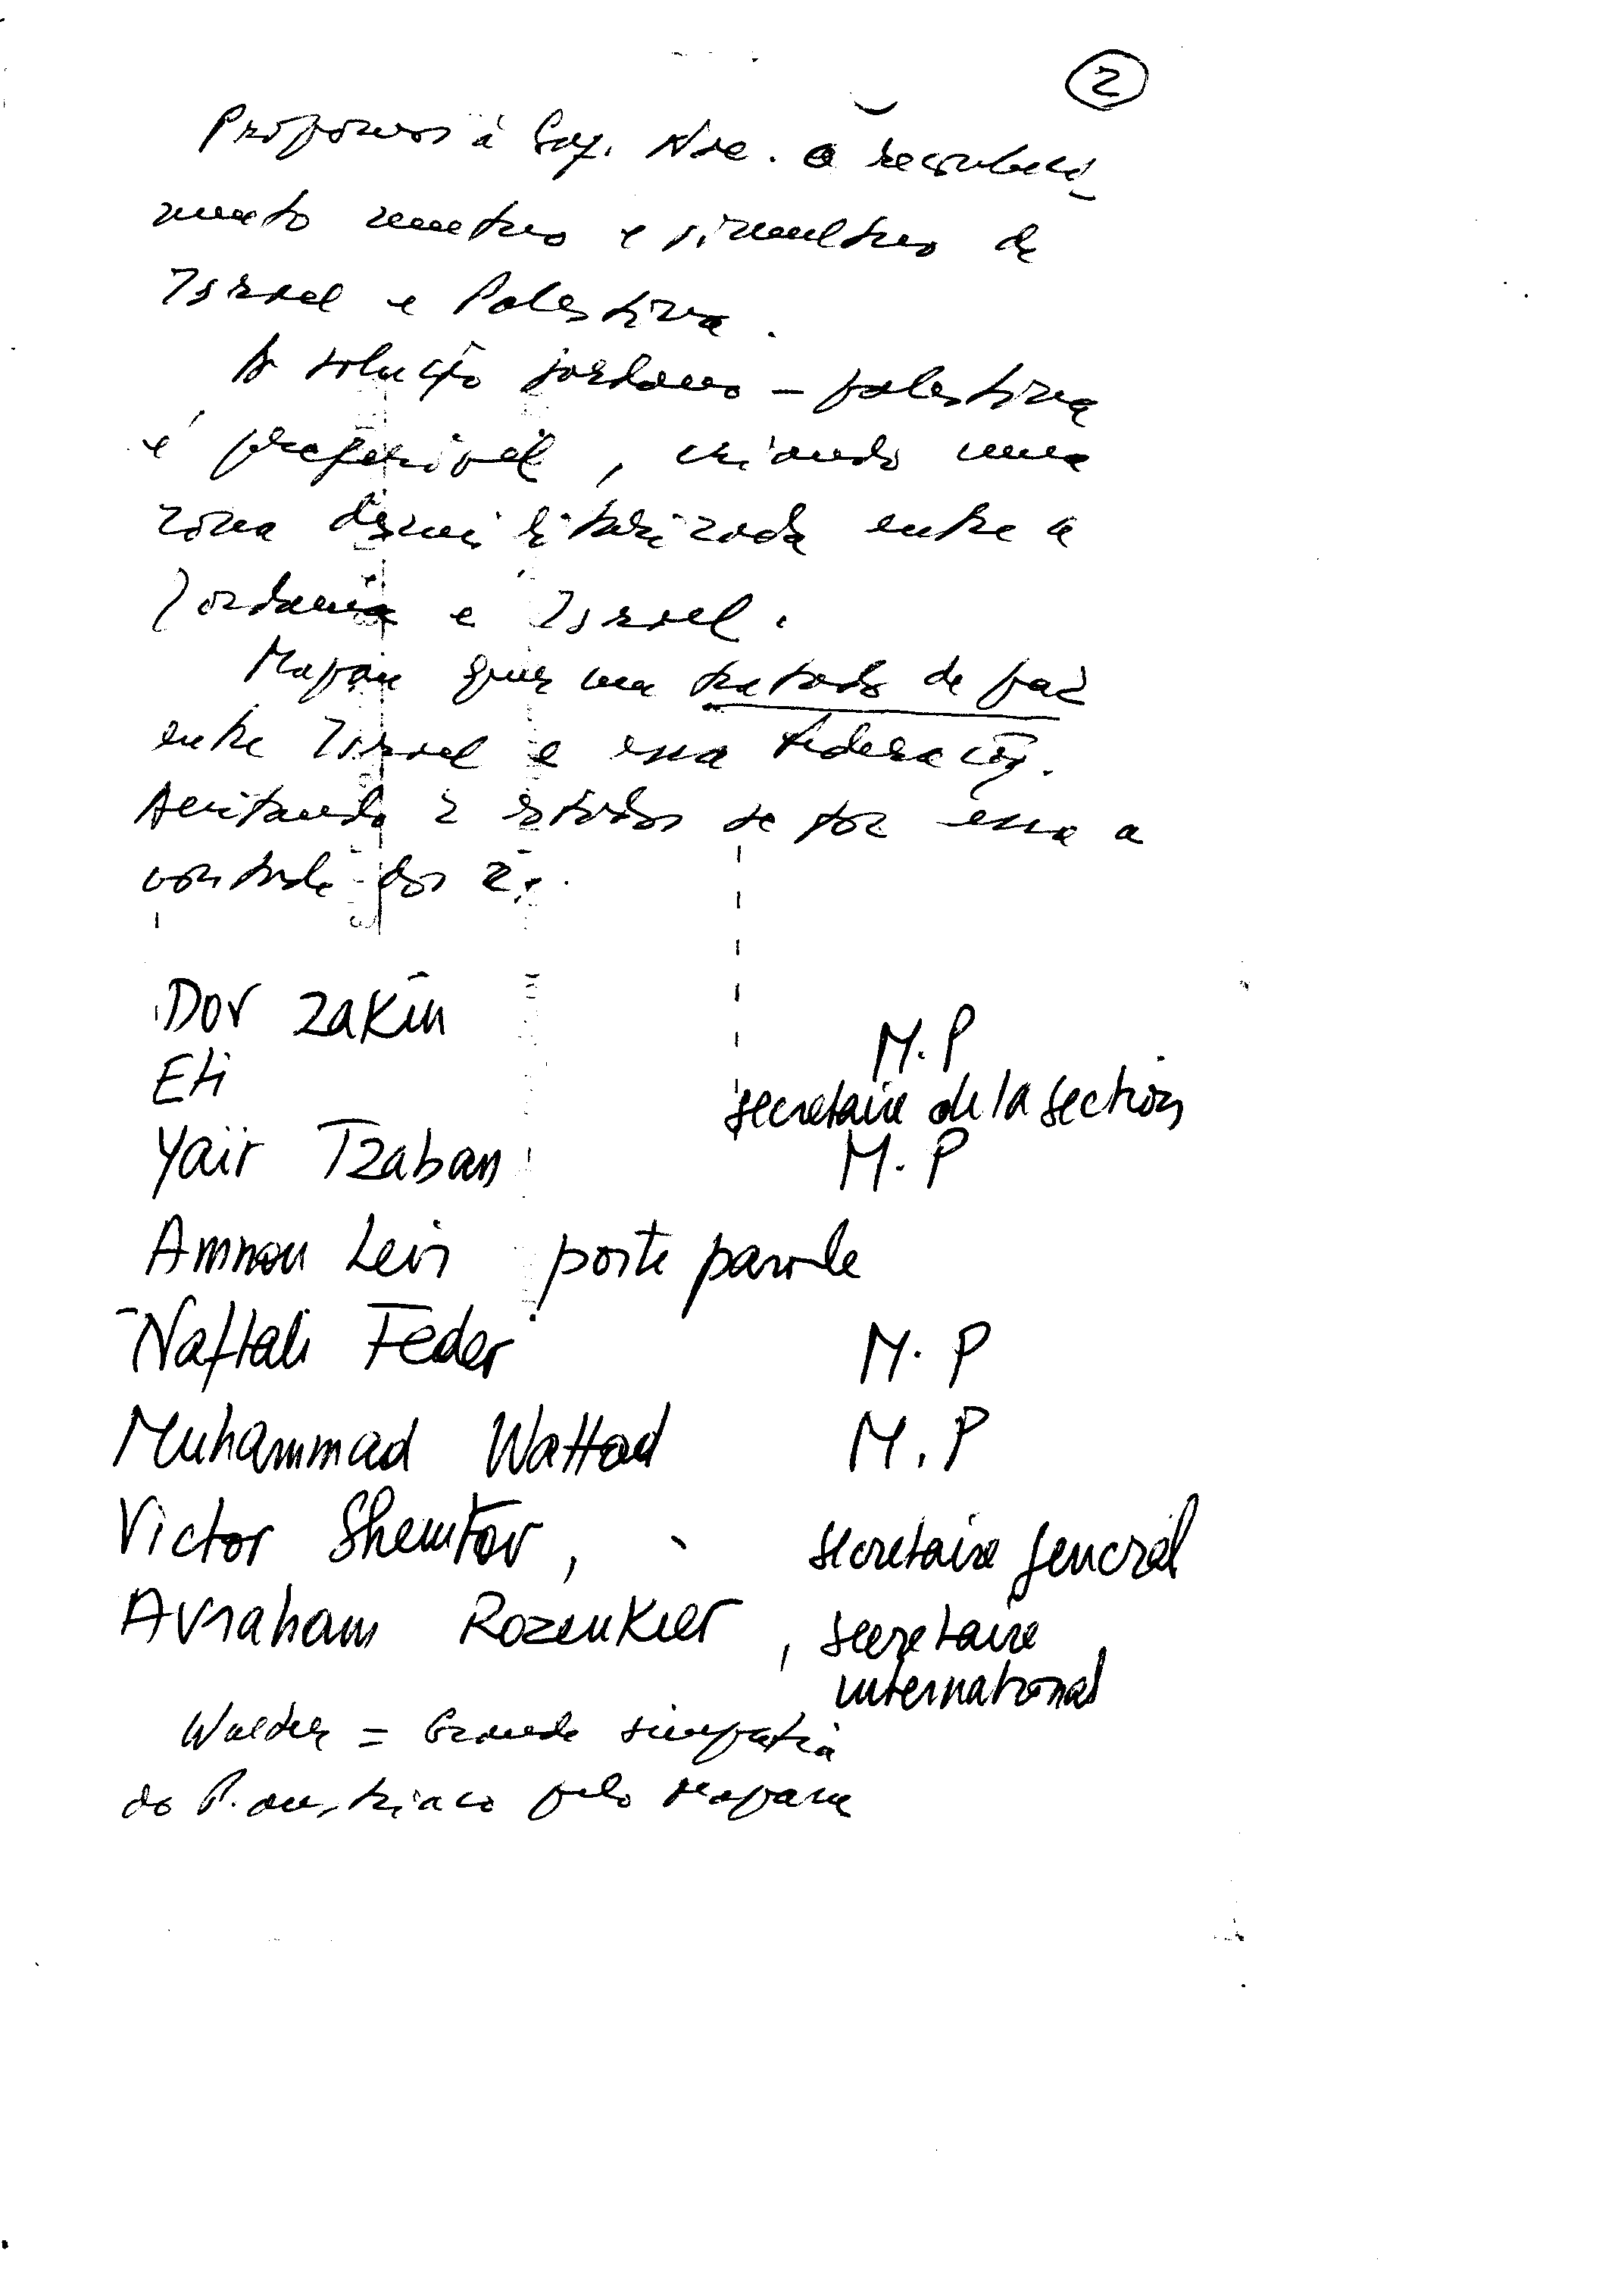 2
Propomos à Soc. o reconheci-
mento mutuo e simultneo de
Israel e Palestina.
A solução jordano-palestina
é preferivel, criando uma
zona desmilitarizada entre a
Jordania e Israel.
Mapam quer um tratado de paz
entre Israel e essa federação.
Aceitando 2 estados se for essa a
vontade dos 2.
Dov Zakin M.P
Eti secretaire de la section
Yaïr Tzaban M.P
Amnon Levi porte parole
Naftali Feder M.P
Muhammad Wattad M.P
Victor Shemtov, secretaire general
Avraham Rozenkier, secretaire
international
Walder = Grande simpatia
do P. austriaco pelo Mapam